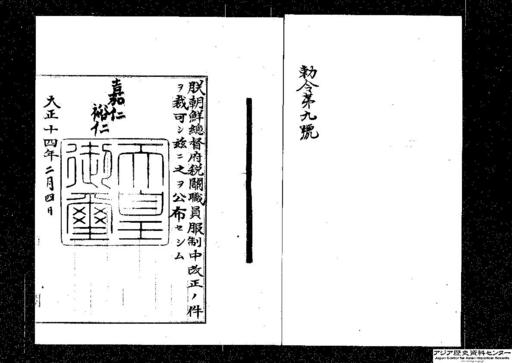 勅令第九號
朕朝鮮總督府税關職員服制中改正ノ件
ヲ裁可シ茲ニ之ヲ公布セシム
嘉仁
裕仁
天皇御璽
大正十四年二月四日
アジア歴史資料センター
Japan Center for Asian Historical Records